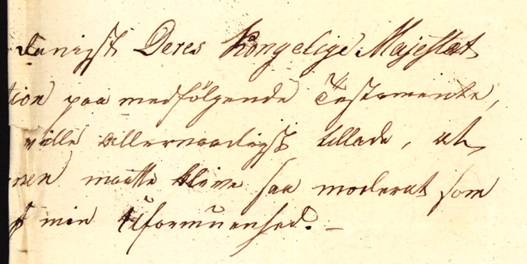 danigst Deres Kongelige Majestæt
tion paa medfölgende Testamente,
ville allernaadigst tillade, at
nen maatte blive saa moderat som
min Uformuenhed. –